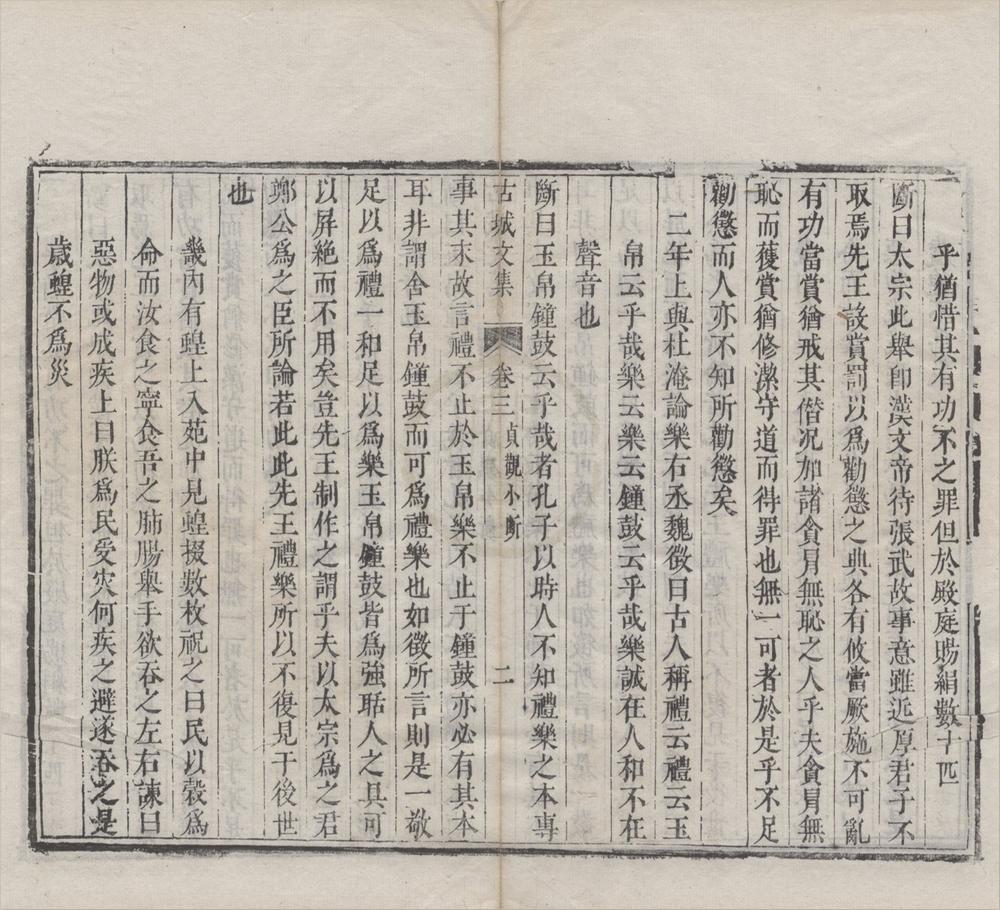 乎猶惜其有功不之罪但於殿庭賜絹數十匹
斷曰太宗此舉卽漢文帝待張武故事意雖近厚君子不
取焉先王設賞罰以爲勸懲之典各有攸當厥施不可亂
有功當賞猶戒其僭况加諸貪冒無恥之人乎夫貪冒無
恥而獲賞猶修潔守道而得罪也無一可者於是乎不足
勸懲而人亦不知所勸懲矣
二年上與杜淹論樂右丞魏徵曰古人稱禮云禮云玉
帛云乎哉樂云樂云鐘鼓云乎哉樂誠在人和不在
聲音也
斷曰玉帛鐘鼓云乎哉者孔子以時人不知禮樂之本專
古城文集 卷三 貞觀小斷 二
事其末故言禮不止於玉帛樂不止于鐘鼓亦必有其本
耳非謂舍玉帛鐘鼓而可爲禮樂也如徵所言則是一敬
足以爲禮一和足以爲樂玉帛鐘鼓皆爲強聒人之具可
以屏絶而不用矣豈先王制作之謂乎夫以太宗爲之君
鄭公爲之臣所論若此此先王禮樂所以不復見于後世
也
畿內有蝗上入苑中見蝗掇數枚祝之曰民以穀爲
命而汝食之寧食吾之肺腸舉手欲吞之左右諫曰
惡物或成疾上曰朕爲民受灾何疾之避遂吞之是
歲蝗不爲災